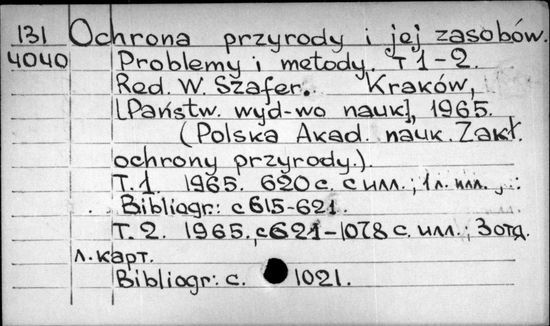 131 Ochrona przyrody i jej zasobów.
4040 Problemy i metody. T 1-2.
Red. W. Szafer. Kraków,
[Państw. wyd-wo nauk], 1965.
(Polska Akad. nauk. Zakł.
ochrony przyrody.).
T.1. 1965. 620 с. с илл.; 1 л. илл.
Bibliogr: с 615-621.
T.2. 1965., с 621-1078 с. илл.; 3 отд.
л. карт.
Bibliogr: с. 1021.